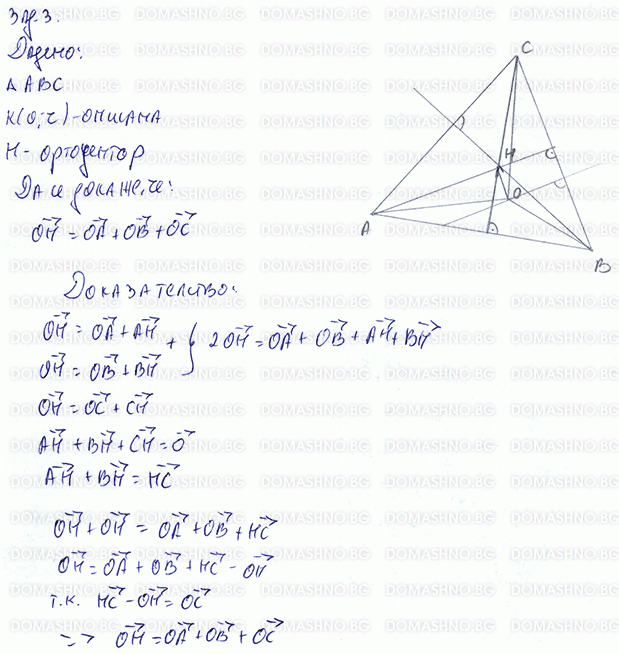 Зад.3.
Дадено:
△ABC
K(O;r)-описана
H- ортоцентър
Да се докаже, че:
OH→ = OA→ + OB→ + OC→
C
H
O
A
B
Доказателство:
OH→ = OA→ + AH→
+ { 2OH→ = OA→ + OB→ + AH→ + BH→
OH→ = OB→ + BH→
OH→ = OC→ + CH→
AH→ + BH→ + CH→ = O→
AH→ + BH→ = HC→
OH→ + OH→ = OA→ + OB→ + HC→
OH→ = OA→ + OB→ + HC→ - OH→
т.к. HC→ - OH→ = OC→
=> OH→ = OA→ + OB→ + OC→
DOMASHNO.BG